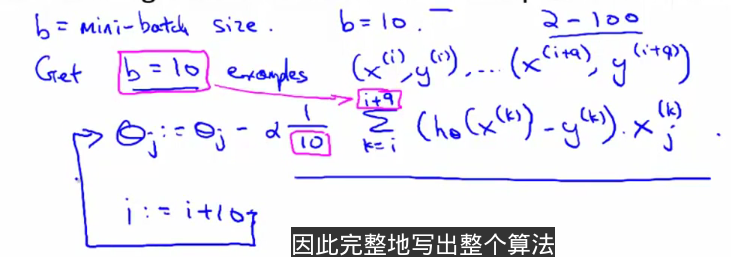 b = mini-batch size. b = 10. 2 - 100
Get b = 10 examples (x^(i), y^(i)), ... (x^(i+9), y^(i+9))
θ_j := θ_j - α 1/10 Σ_{k=i}^{i+9} (h_θ(x^(k)) - y^(k)) · x_j^(k) .
i := i+10
因此完整地写出整个算法